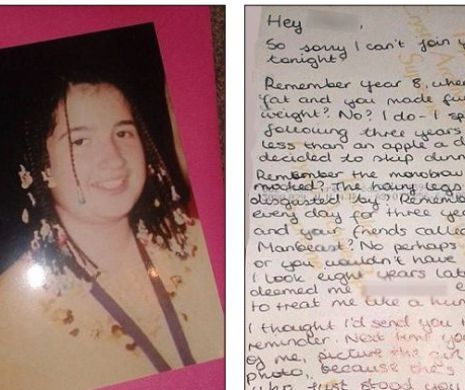 Hey
So sorry I can't join
tonight?
Remember year 8, whe
fat and you made fu
weight? No? I do - I sp
following three years
less than an apple a d
decided to skip dinn
Remember the monobrow
mocked? The hairy legs
disgusted by? Rememb
every day for three ye
and your friends calle
Manbeast? No perhaps
or you wouldn't have
I look eight years lat
deemed me
to treat me like a hum
I thought I'd send you
reminder. Next time yo
of me, picture the
photo, because she's
just stood you